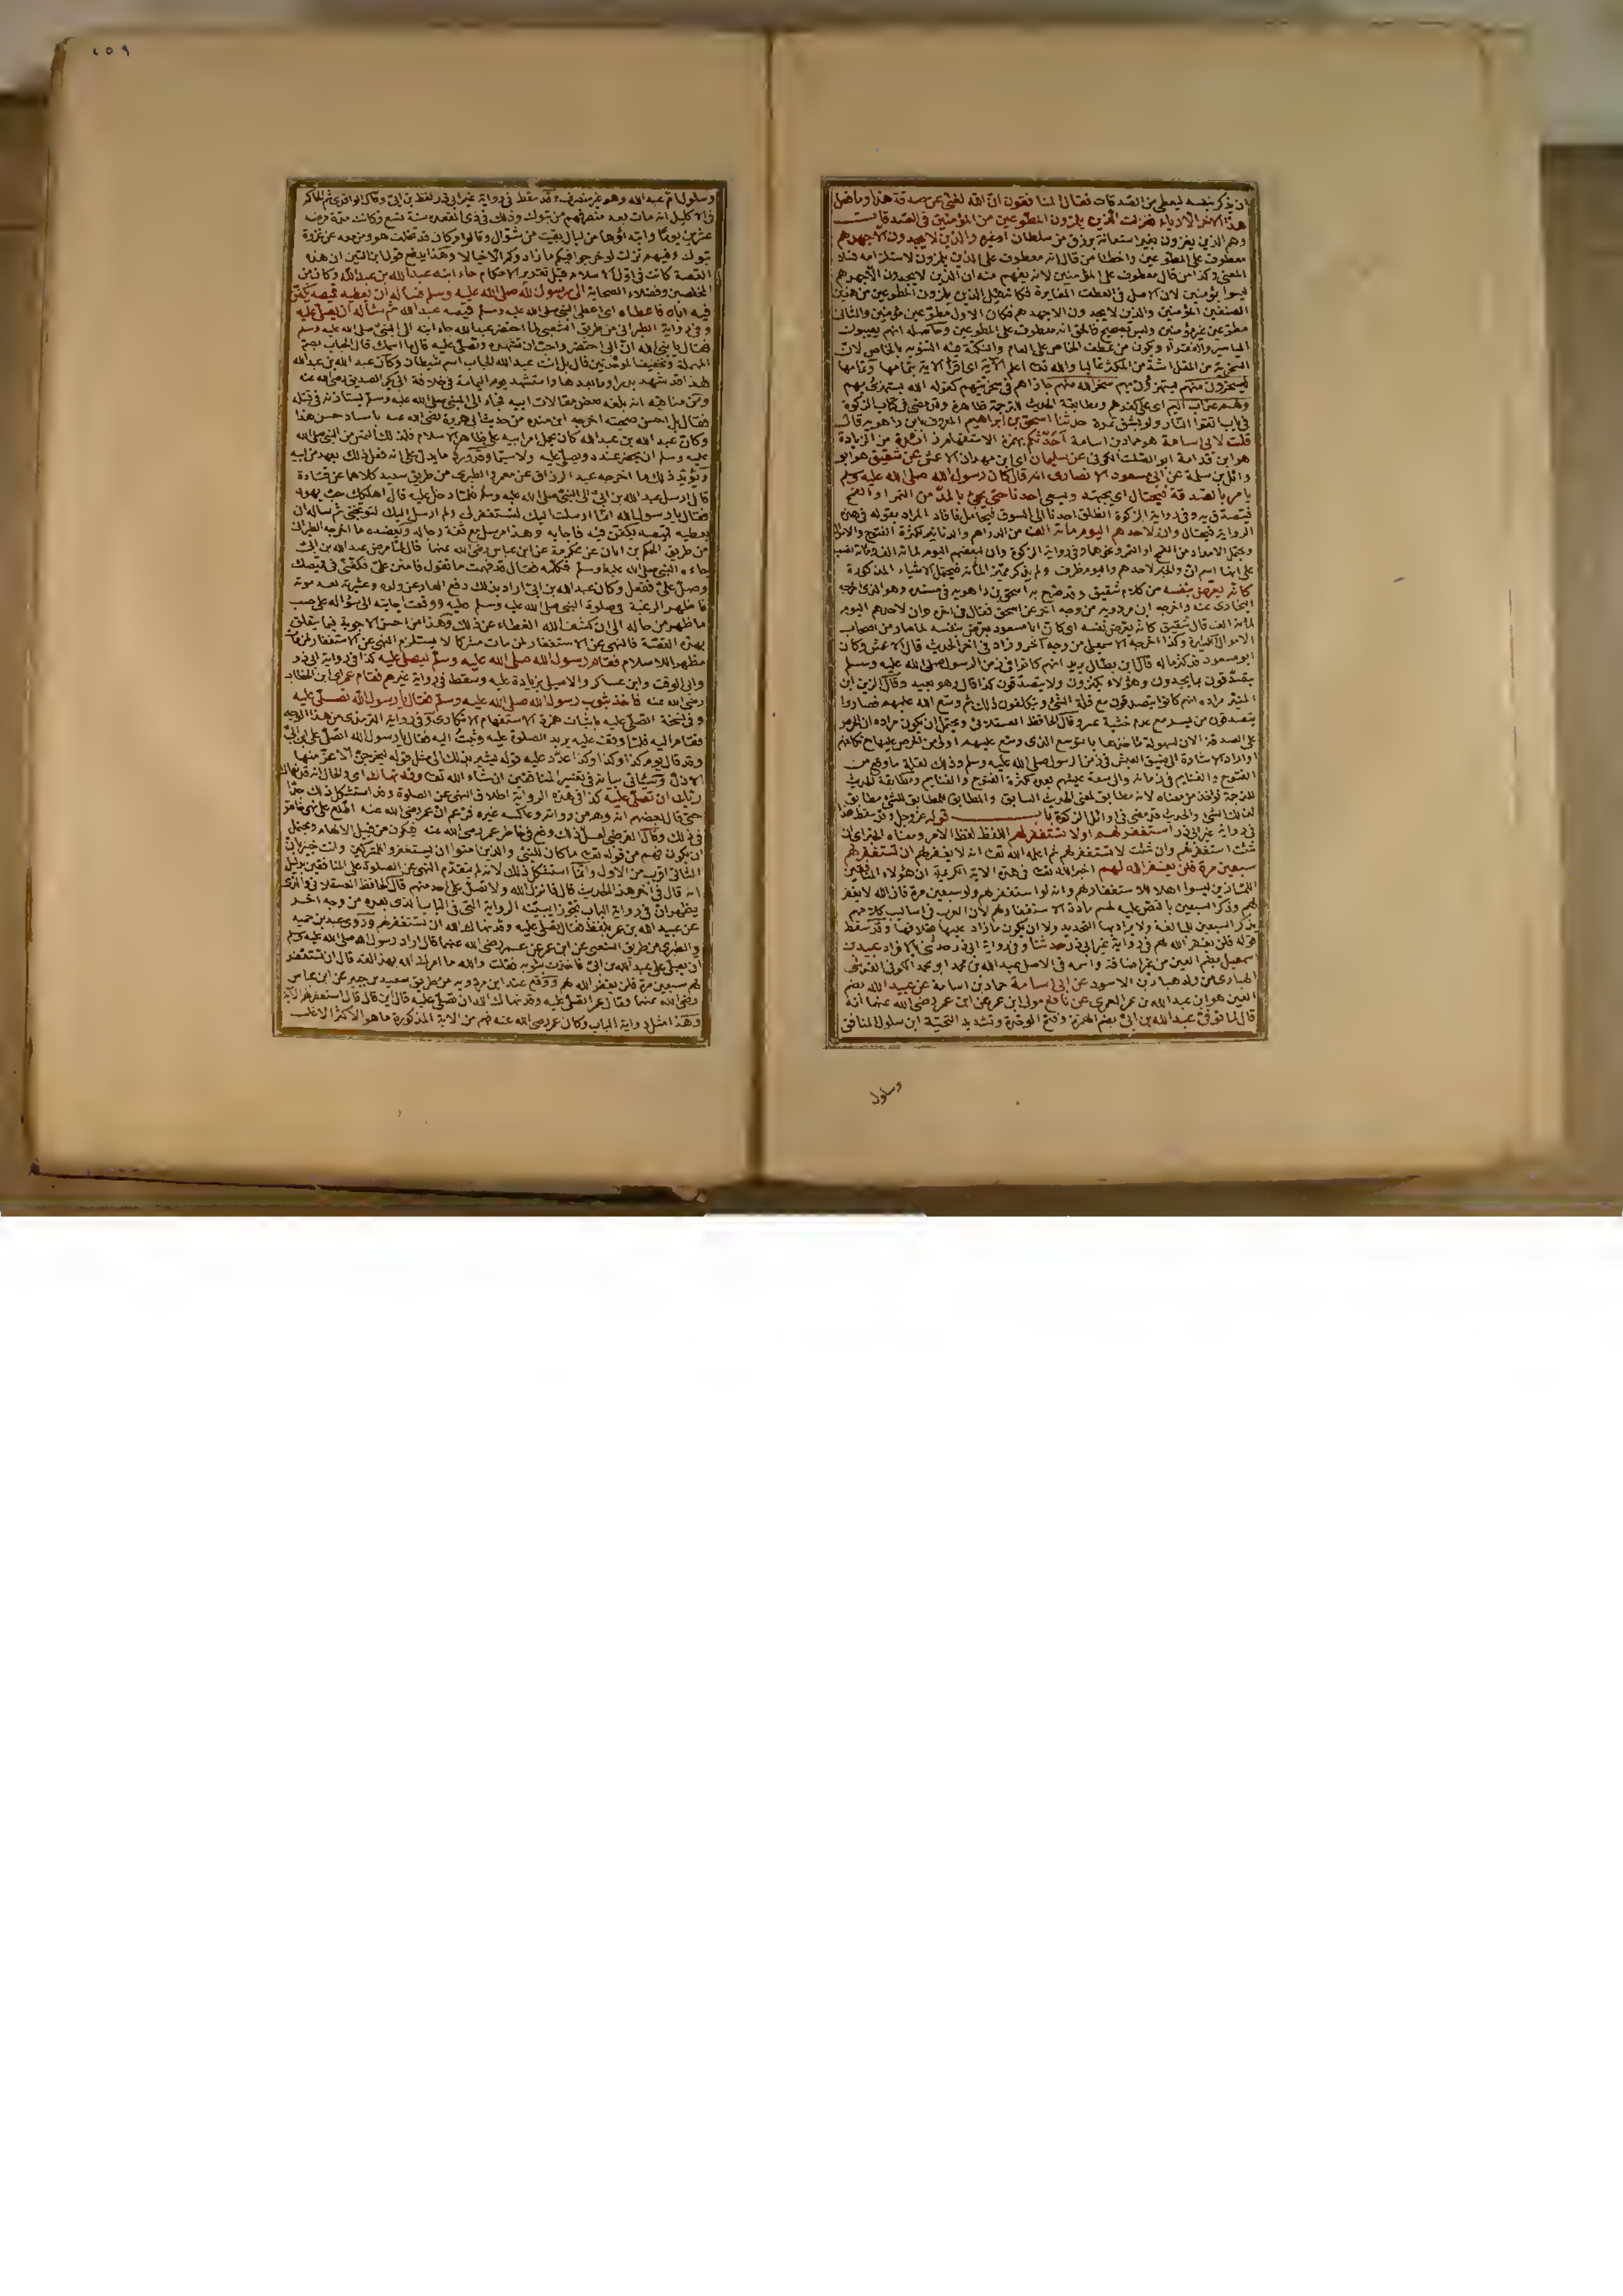 ان ذكر بنفسه ليعطى من الصدقات فقال المنافقون ان الله لغنى عن صدقة هذا وما فعل
هذا الآخر الا رياء فنزلت الذين يلمزون المطوعين من المؤمنين فى الصدقات
وهم الذين يغزون بغير استعانة برزق من سلطان او غيره والذين لا يجدون الا جهدهم
معطوف على المطوعين واخطأ من قال انه معطوف على الذين يلمزون لاستلزامه فساد
المعنى وكذا من قال معطوف على المؤمنين لانه يفهم منه ان الذين لا يجدون الا جهدهم
ليسوا بمؤمنين لان الاصل فى العطف المغايرة فكانه قيل الذين يلمزون المطوعين من هذين
الصنفين المؤمنين والذين لا يجدون الا جهدهم فكان الاول مطوعين مؤمنين والثانى
مطوعين غير مؤمنين وليس بصحيح فالحق انه معطوف على المطوعين وحاصله انهم يعيبون
المياسير والفقراء ويكون من عطف الخاص على العام والنكتة فيه التنويه بالخاص لان
السخرية من المقل اشد من المكثر غالبا والله تعالى اعلم الآية اى اقرأ الآية بتمامها وتمامها
فيسخرون منهم يستهزؤن بهم سخر الله منهم جازاهم فى سخريتهم كقوله الله يستهزئ بهم
ولهم عذاب اليم اى على كفرهم ومطابقة الحديث للترجمة ظاهرة وقد مضى فى كتاب الزكوة
فى باب اتقوا النار ولو بشق تمرة حدثنا اسحق بن ابراهيم المعروف بابن راهويه قال
قلت لابى اسامة هو حماد بن اسامة أحدثكم بهمزة الاستفهام زائدة من الزيادة
هو ابن قدامة ابو الصلت الكوفى عن سليمان اى ابن مهران الاعمش عن شقيق هو ابو
وائل بن سلمة عن ابى مسعود الانصارى انه قال كان رسول الله صلى الله عليه وسلم
يأمر بالصدقة فيحتال اى يجتهد ويسعى احدنا حتى يجئ بالمد من التمر او القمح
فيتصدق به وفى رواية الزكوة انطلق احدنا الى السوق فيحامل فافاد المراد بقوله فى هذه
الرواية فيحتال وان لاحدهم اليوم مائة الف من الدراهم والدنانير لكثرة الفتوح والاموال
على انها اسم ان والخبر لاحدهم واليوم ظرف ولم يذكر مميز المائة فيحتمل الاشياء المذكورة
كأنه يعرض بنفسه من كلام شقيق وقد صرح به اسحق بن راهويه فى مسنده وهو الذى اخرجه
البخارى عنه واخرجه ابن مردويه من وجه آخر عن اسحق فقال فى آخره وان لاحدهم اليوم
لمائة الف قال شقيق كأنه يعرض بنفسه اى كان ابا مسعود يعرض بنفسه لما صار من اصحاب
الاموال الكثيرة وكذا اخرجه الاسمعيلى من وجه آخر وزاد فى آخر الحديث قال الاعمش وكان
ابو مسعود قد كثر ماله قال ابن بطال يريد انهم كانوا فى زمن الرسول صلى الله عليه وسلم
يتصدقون بما يجدون وهؤلاء يكنزون ولا يتصدقون كذا قال وهو بعيد وقال الزين ابن
المنير مراده انهم كانوا يتصدقون مع قلة الشئ ويتكلفون ذلك ثم وسع الله عليهم فصاروا
يتصدقون من يسر مع عدم خشية عسر وقال الحافظ العسقلانى ويحتمل ان يكون مراده ان الحرص
على الصدقة الآن لسهولة مأخذها بالتوسع الذى وسع عليهم اولى من الحرص عليها مع تكلفهم
او اراد الاشارة الى ضيق العيش فى زمن الرسول صلى الله عليه وسلم وذلك لقلة ما وقع من
الفتوح والغنايم فى زمانه والى سعة عيشهم بعده لكثرة الفتوح والغنايم ومطابقة الحديث
للترجمة تؤخذ من معناه لانه مطابق لمعنى الحديث السابق والمطابق للمطابق للشئ مطابق
لذلك الشئ والحديث قد مضى فى اوائل الزكوة باب قوله عز وجل وقد سقط هذا
فى رواية غير ابى ذر استغفر لهم اولا تستغفر لهم اللفظ لفظ الامر ومعناه الخبر اى ان
شئت استغفر لهم وان شئت لا تستغفر لهم ثم اعلمه الله تعالى انه لا يغفر لهم ان تستغفر لهم
سبعين مرة فلن يغفر الله لهم اخبر الله تعالى فى هذه الآية الكريمة ان هؤلاء المنافقين
اللمازين ليسوا اهلا للاستغفار لهم وانه لو استغفر لهم ولو سبعين مرة فان الله لا يغفر
لهم وذكر السبعين بالنص عليه لحسم مادة الاستغفار لهم لان العرب فى اساليب كلامهم
يذكر السبعين للمبالغة ولا يراد بها التحديد ولا ان يكون ما زاد عليها خلافها وقد سقط
قوله فلن يغفر الله لهم فى رواية غير ابى ذر حدثنا وفى رواية ابى ذر حدثنى بالافراد عبيد بن
اسمعيل بضم العين من غير اضافة واسمه فى الاصل عبد الله بن محمد ابو محمد الكوفى القرشى
الهبارى من ولد هبار بن الاسود عن ابى اسامة حماد بن اسامة عن عبيد الله بضم
العين هو ابن عبد الله بن عمر العمرى عن نافع مولى ابن عمر عن ابن عمر رضى الله عنهما انه
قال لما توفى عبد الله بن ابى بضم الهمزة وفتح الموحدة وتشديد التحتية ابن سلول المنافق
وسلول
٢٥٩
وسلول ام عبد الله وهو غير منصرف وقد سقط فى رواية غير ابى ذر لفظ بن ابى وقال الواقدى ثم الحاكم
فى الاكليل انه مات بعد منصرفهم من تبوك وذلك فى ذى القعدة سنة تسع وكانت مدة مرضه
عشرين يوما وابتداؤها من ليال بقيت من شوال وقالوا وكان قد تخلف هو ومن معه عن غزوة
تبوك وفيهم نزلت لو خرجوا فيكم ما زادوكم الا خبالا وهذا يدفع قول ابن التين ان هذه
القصة كانت فى اول الاسلام قبل تقرير الاحكام جاء ابنه عبد الله بن عبد الله وكان من
المخلصين وفضلاء الصحابة الى رسول الله صلى الله عليه وسلم فسأله ان يعطيه قميصه يكفن
فيه اباه فاعطاه اى اعطى النبى صلى الله عليه وسلم قميصه عبد الله ثم سأله ان يصلى عليه
وفى رواية الطبرانى من طريق الشعبى لما احتضر عبد الله جاء ابنه الى النبى صلى الله عليه وسلم
فقال يا نبى الله ان ابى احتضر واحب ان تشهده وتصلى عليه قال ما اسمك قال الحباب بضم
المهملة وتخفيف الموحدتين قال بل انت عبد الله الحباب اسم شيطان وكان عبد الله بن عبد الله
هذا قد شهد بدرا وما بعدها واستشهد يوم اليمامة فى خلافة ابى بكر الصديق رضى الله عنه
ومن مناقبه انه بلغه بعض مقالات ابيه فجاء الى النبى صلى الله عليه وسلم يستأذنه فى قتله
فقال بل احسن صحبته اخرجه ابن منده من حديث ابى هريرة رضى الله عنه باسناد حسن هذا
وكان عبد الله بن عبد الله كان يحمل امر ابيه على ظاهر الاسلام فلذلك التمس من النبى صلى الله
عليه وسلم ان يحضر عنده ويصلى عليه ولا سيما وقد ورد ما يدل على انه فعل ذلك بعهد من ابيه
ويؤيد ذلك ما اخرجه عبد الرزاق عن معمر والطبرى من طريق سعيد كلاهما عن قتادة
قال ارسل عبد الله بن ابى الى النبى صلى الله عليه وسلم فلما دخل عليه قال اهلكك حب يهود
فقال يا رسول الله انما ارسلت اليك لتستغفر لى ولم ارسل اليك لتوبخنى ثم سأله ان
يعطيه قميصه يكفن فيه فاجابه وهذا مرسل مع ثقة رجاله ويعضده ما اخرجه الطبرانى
من طريق الحكم بن ابان عن عكرمة عن ابن عباس رضى الله عنهما قال لما مرض عبد الله بن ابى
جاءه النبى صلى الله عليه وسلم فكلمه فقال قد فهمت ما تقول فامنن على فكفنى فى قميصك
وصل على ففعل وكان عبد الله بن ابى اراد بذلك دفع العار عن ولده وعشيرته بعد موته
فاظهر الرغبة فى صلوة النبى صلى الله عليه وسلم عليه ووقعت اجابته الى سؤاله على حسب
ما ظهر من حاله الى ان كشف الله الغطاء عن ذلك وهذا من احسن الاجوبة فيما يتعلق
بهذه القصة فالنهى عن الاستغفار لمن مات مشركا لا يستلزم النهى عن الاستغفار لمن مات
مظهرا للاسلام فقام رسول الله صلى الله عليه وسلم ليصلى عليه كذا فى رواية ابى ذر
وابى الوقت وابن عساكر والاصيلى بزيادة عليه وسقط فى رواية غيرهم فقام عمر اى ابن الخطاب
رضى الله عنه فاخذ بثوب رسول الله صلى الله عليه وسلم فقال يا رسول الله تصلى عليه
وفى نسخة اتصلى عليه باثبات همزة الاستفهام الانكارى وفى رواية الترمذى من هذا الوجه
فقام اليه فلما وقف عليه يريد الصلوة عليه وثبت اليه فقال يا رسول الله اتصلى على ابن ابى
وقد قال يوم كذا وكذا وكذا اعدد عليه قوله يشير بذلك الى مثل قوله ليخرجن الاعز منها
الاذل وسيأتى بيانه فى تفسير المنافقين ان شاء الله تعالى وقد نهاك اى والحال انه قد نهاك
ربك ان تصلى عليه كذا فى هذه الرواية اطلاق النهى عن الصلوة وقد استشكل ذلك جدا
حتى قال بعضهم انه وهم من رواته وعاكسه غيره فزعم ان عمر رضى الله عنه اطلع على نهى خاص
فى ذلك وقال القرطبى لعل ذلك وقع فى خاطر عمر رضى الله عنه فيكون من قبيل الالهام ويحتمل
ان يكون فهم من قوله تعالى ما كان للنبى والذين آمنوا ان يستغفروا للمشركين وانت خبير بان
الثانى اقرب من الاول وانما استشكل ذلك لانه لم يتقدم النهى عن الصلوة على المنافقين بدليل
انه قال فى آخر هذا الحديث قال فانزل الله ولا تصل على احد منهم قال الحافظ العسقلانى والذى
يظهر ان فى رواية الباب تجوزا بينته الرواية التى فى الباب الذى بعده من وجه آخر
عن عبيد الله بن عمر بلفظ فقال تصلى عليه وقد نهاك الله ان تستغفر لهم وروى عبد بن حميد
والطبرى من طريق الشعبى عن ابن عمر عن عمر رضى الله عنهما قال اراد رسول الله صلى الله عليه وسلم
ان يصلى على عبد الله بن ابى فاخذت بثوبه فقلت والله ما امرك الله بهذا لقد قال ان تستغفر
لهم سبعين مرة فلن يغفر الله لهم ووقع عند ابن مردويه من طريق سعيد بن جبير عن ابن عباس
رضى الله عنهما فقال عمر اتصلى عليه وقد نهاك الله ان تصلى عليه قال اين قال قال استغفر لهم الآية
وهذا مثل رواية الباب وكان عمر رضى الله عنه فهم من الآية المذكورة ما هو الاكثر الاغلب